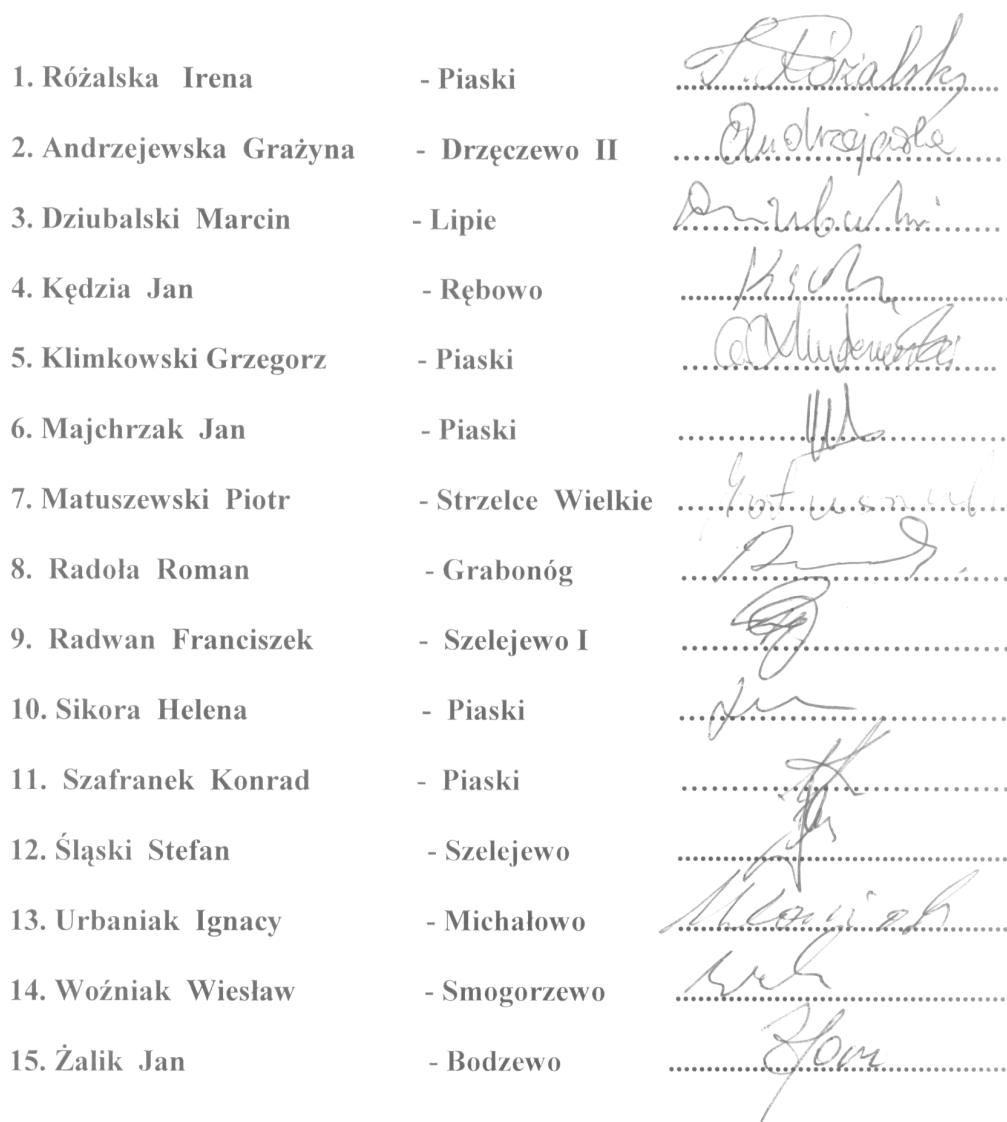 1. Różalska Irena - Piaski I. Różalska
2. Andrzejewska Grażyna - Drzęczewo II Andrzejewska
3. Dziubalski Marcin - Lipie Dziubalski
4. Kędzia Jan - Rębowo
5. Klimkowski Grzegorz - Piaski
6. Majchrzak Jan - Piaski
7. Matuszewski Piotr - Strzelce Wielkie
8. Radoła Roman - Grabonóg
9. Radwan Franciszek - Szelejewo I
10. Sikora Helena - Piaski
11. Szafranek Konrad - Piaski
12. Śląski Stefan - Szelejewo
13. Urbaniak Ignacy - Michałowo
14. Woźniak Wiesław - Smogorzewo
15. Żalik Jan - Bodzewo